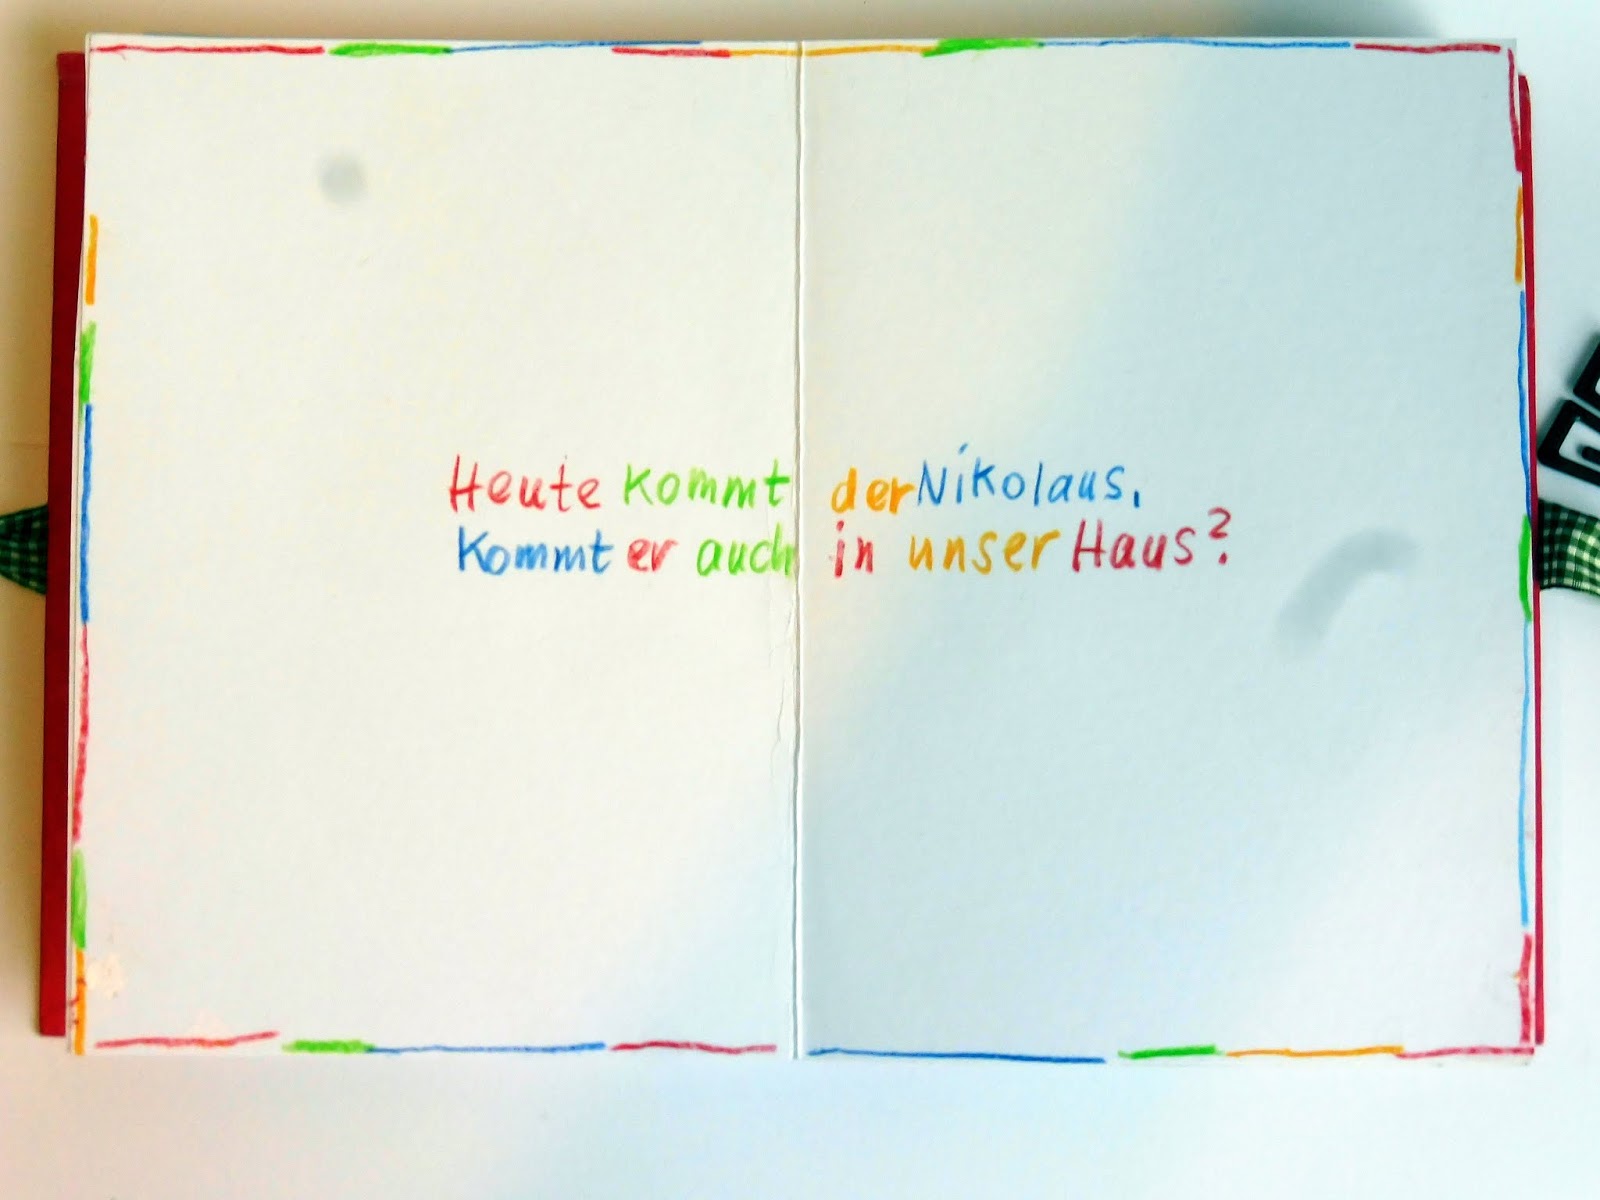 Heute kommt der Nikolaus,
Kommt er auch in unser Haus?